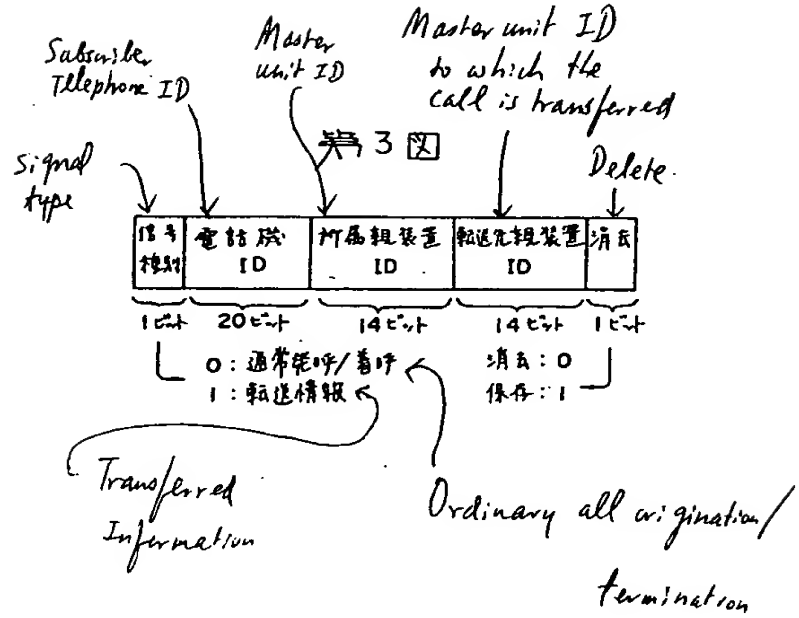 Subscriber
Telephone ID
Master
unit ID
Master unit ID
to which the
call is transferred
signal
type
第3図
Delete.
信号
種別
電話機
ID
所属親装置
ID
転送先親装置
ID
消去
1ビット
20ビット
14ビット
14ビット
1ビット
0:通常発呼/着呼
1:転送情報
消去:0
保存:1
Transferred
Information
Ordinary all origination/
termination